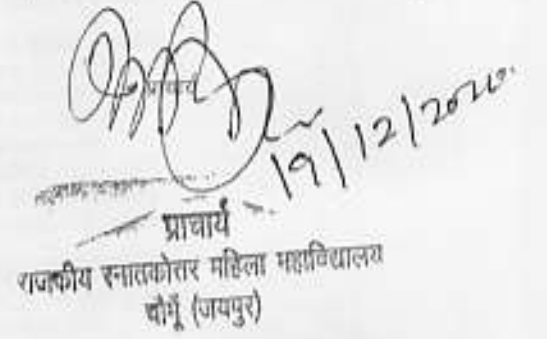 प्राचार्य
19/12/2020
प्राचार्य
राजकीय स्नातकोत्तर महिला महाविद्यालय
चौमूँ (जयपुर)